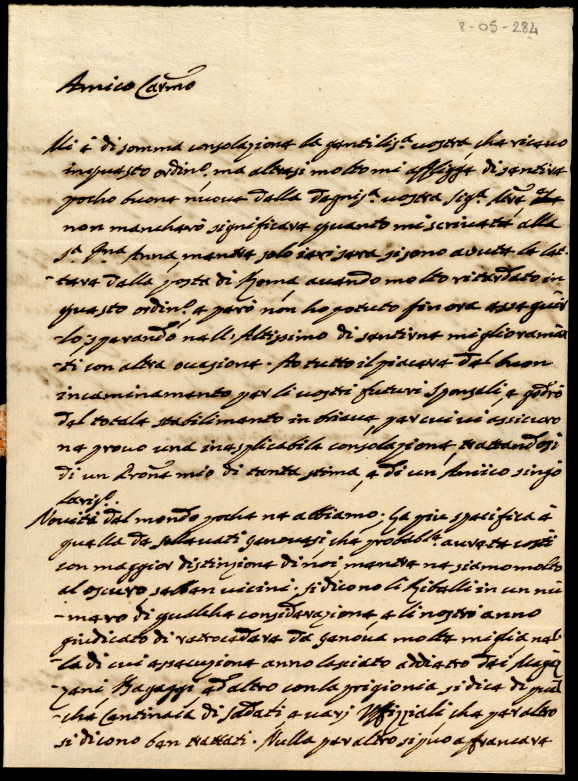 8-05-284
Amico Carmo
Mi è di somma consolazione la gentilisa vostra che ricevo
in questo ordino, ma altresi molto mi affligge di sentire
poche buone nuove dalla degnisa vostra siga
non mancherò significare quanto mi scrivete alla
sa Anna, mentre solo ieri sera si sono avute le let-
tere dalla posta di Roma avendo molto ritardato in
questo ordino, e però non ho potuto fin ora esseguir-
lo, sperando nell'Altissimo di sentirne miglioramen-
ti con altra ocasione. Ho tutto il piacere del buon
incaminamento per li vostri futuri sponsali, e godrò
del totale stabilimento in breve, per cui vi assicuro
ne provo una inesplicabile consolazione, trattandosi
di un Prone mio di tanta stima, e di un Amico singo
lariso.
Novità del mondo poche ne abbiamo. La piu specifica è
quella de sollevati genovesi che probabile avrete costi
con maggior distinzione di noi mentre ne siamo molto
al oscuro se ben vicini. Si dicono li Ribelli in un nu-
mero di qualche considerazione, e li nostri anno
giudicato di retrocedere da genova molte miglia nel-
la di cui essecuzione anno lasciato addietro dei Maga-
zeni, Bagaggi ed altro con la prigionia si dice di
che Centinaia di soldati e varj Uffizziali che per altro
si dicono ben trattati. Nulla per altro si puo affrancare